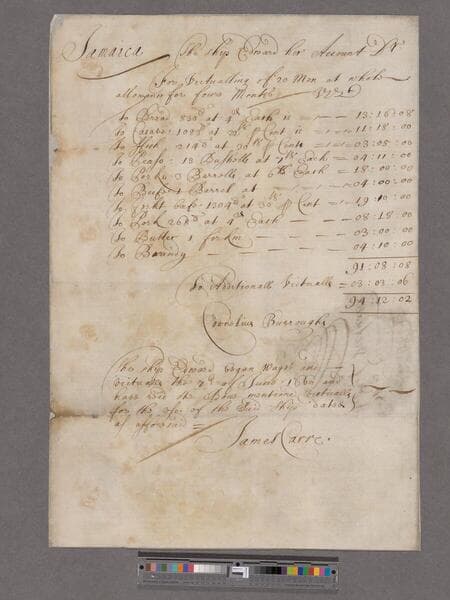 Jamaica The ship Edward her Account Dr
For Victualling of 20 Men at whole
allowance for foure Months
to Bread 820d at 4d Each is 13:16:08
to at p Cent is 11:18:00
to 214d at p Cent 03:08:00
to Pease: 13 Bushells at 7s Each = 04:11:00
to Porke 3 Barrells at 6lb Each = 18:00:00
to Beefe 1 Barrel at 04:00:00
to Beefe 1304d at 30s p Cent 19:10:00
to Pork 262d at Each 08:18:00
to Butter 1 forkin 03:00:00
to Brandy 04:10:00
91:08:08
To Additionall Victualls = 03:03:06
94:12:02
Cornelius Burroughs
The ship Edward began Wages and
victualls the of June: 1660 and
have the above mentioned victualls
for the use of the said ship dated
as aforesaid =
James Carre.